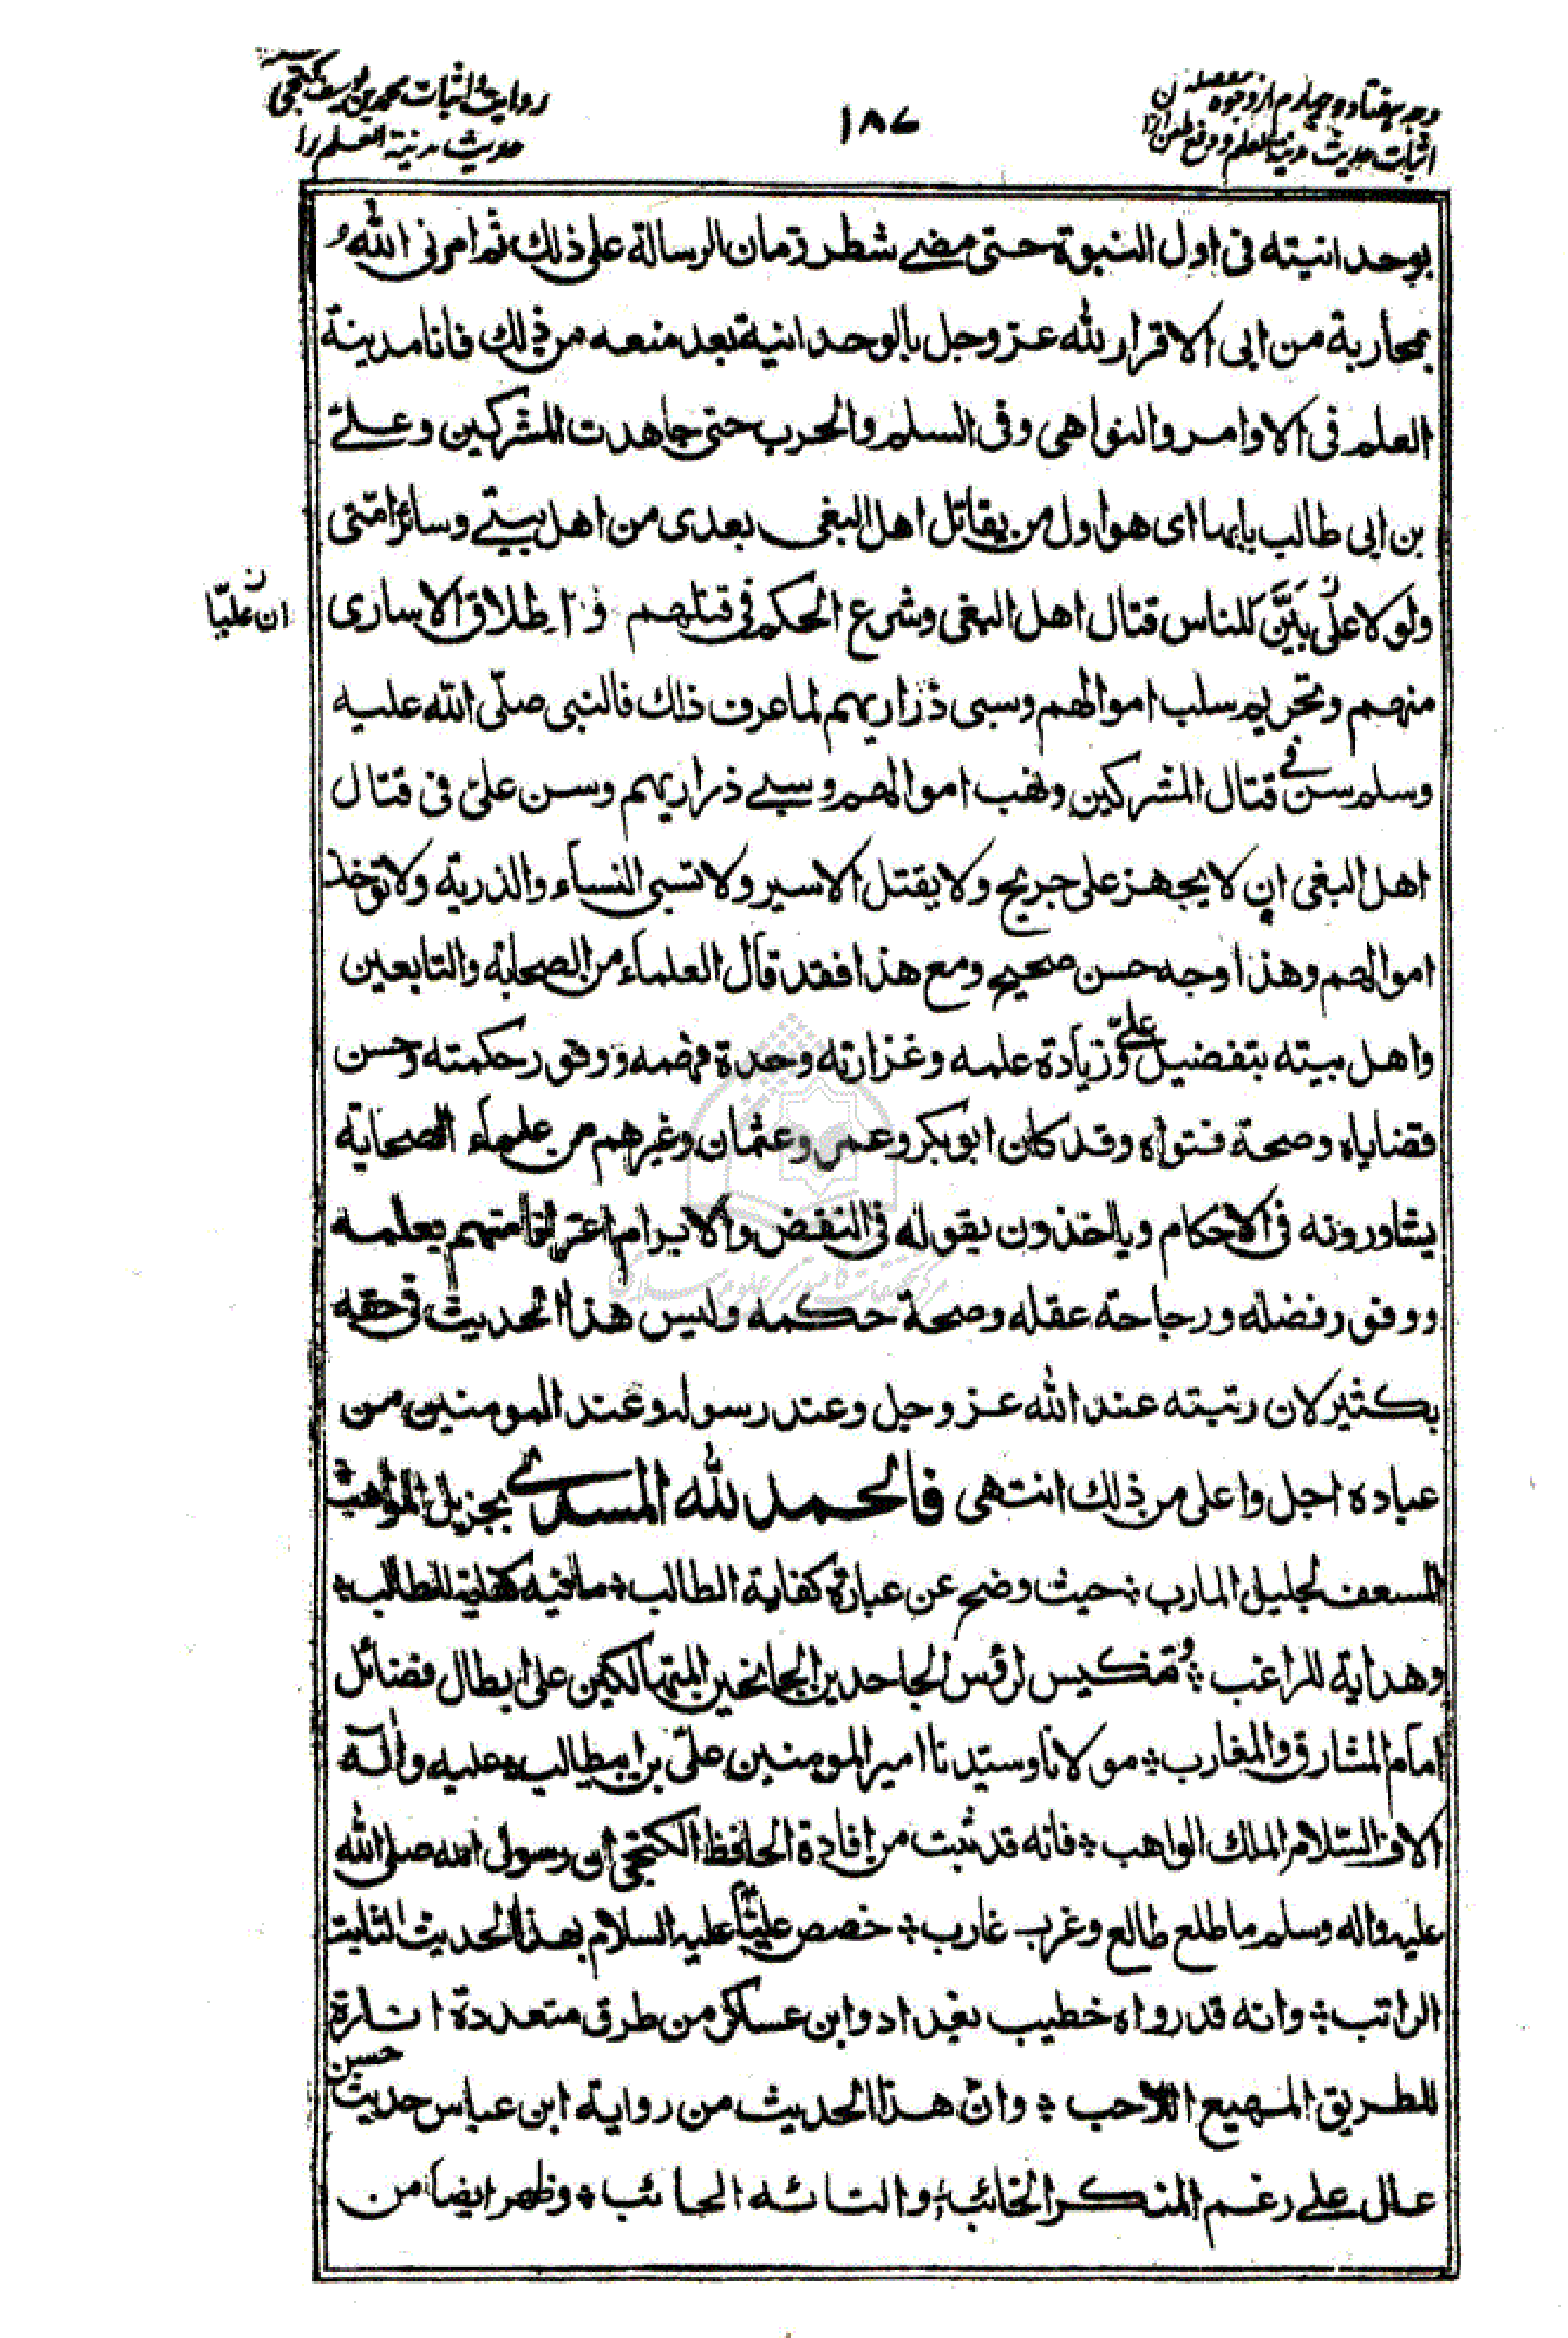 وجه هفتاد و چهارم از وجوه مفصله
اثبات حدیث مدینة العلم و دفع طعن ازان
۱۸۷
روایت و اثبات محمد بن یوسف گنجی
حدیث مدینة العلم را
بوحدانيته فى اول النبوة حتى مضے شطر زمان الرسالة على ذلك ثم امرنى الله
بمحاربة من ابى الاقرار لله عز وجل بالوحدانية بعد منعه من ذلك فانا مدينة
العلم فى الاوامر والنواهى وفى السلم والحرب حتى جاهدت المشركين وعلےّ
بن ابى طالب بابها اى هو اول من يقاتل اهل البغى بعدى من اهل بيتے وسائر امتى
ولولا علىٌّ بَيَّنَ للناس قتال اهل البغى وشرع الحكم فى قتلهم و اطلاق الاسارى
ان عليّا ن
منهم وتحريم سلب اموالهم وسبى ذراريهم لما عرف ذلك فالنبى صلّى الله عليه
وسلم سن فى قتال المشركين ونهب اموالهم وسبے ذراريهم وسن علىّ فى قتال
اهل البغى ان لا يجهز على جريح ولا يقتل الاسير ولا تسبى النساء والذرية ولا توخذ
اموالهم وهذا وجه حسن صحيح ومع هذا فقد قال العلماء من الصحابة والتابعين
واهل بيته بتفضيل علىّ وزيادة علمه وغزارته وحدة فهمه ووفور حكمته وحسن
قضاياه وصحة فتواه وقد كان ابوبكر وعمر وعثمان وغيرهم من علماء الصحابة
يشاورونه فى الاحكام وياخذون بقوله فى النقض والابرام اعترافا منهم بعلمه
ووفور فضله ورجاحة عقله وصحة حكمه وليس هذا الحديث فى حقه
بكثير لان رتبته عند الله عز وجل وعند رسوله وعند المومنين من
عباده اجل واعلى من ذلك انتهى فالحمد لله المسدى بجزيل المواهب
المسعف لجليل المارب * حيث وضح عن عبارة كفاية الطالب * مافيه كفاية للطالب *
وهداية للراغب * وتنكيس لرؤس الجاحدين الجانحين المتهالكين على ابطال فضائل
امام المشارق والمغارب * مولانا وسيّدنا امير المومنين علىّ بن ابيطالب * عليه وآله
الاف السّلام الملك الواهب * فانه قد ثبت من افادة الحافظ الكنجى ان رسول الله صلى الله
عليه واله وسلم ما طلع طالع وغرب غارب * خصص عليّاً عليه السلام بهذا الحديث الثابت
الراتب * وانه قد رواه خطيب بغداد وابن عساكر من طرق متعددة اثارة
للطريق المهيع اللاحب * وانّ هذا الحديث من رواية ابن عباس حديث حسن
عال على رغم المنكر الخائب * والتائه الحائب * وظهر ايضا من